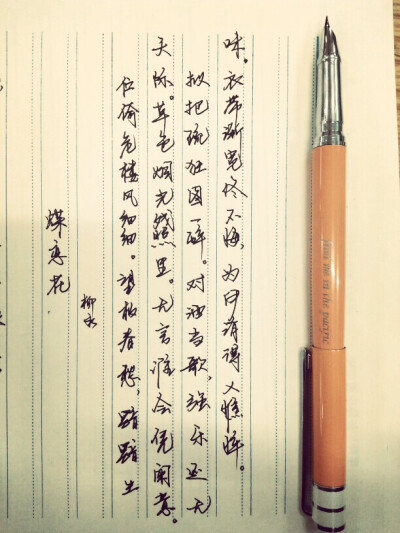 蝶恋花
柳永
伫倚危楼风细细。望极春愁,黯黯生
天际。草色烟光残照里。无言谁会凭阑意。
拟把疏狂图一醉。对酒当歌,强乐还无
味。衣带渐宽终不悔,为伊消得人憔悴。
in the